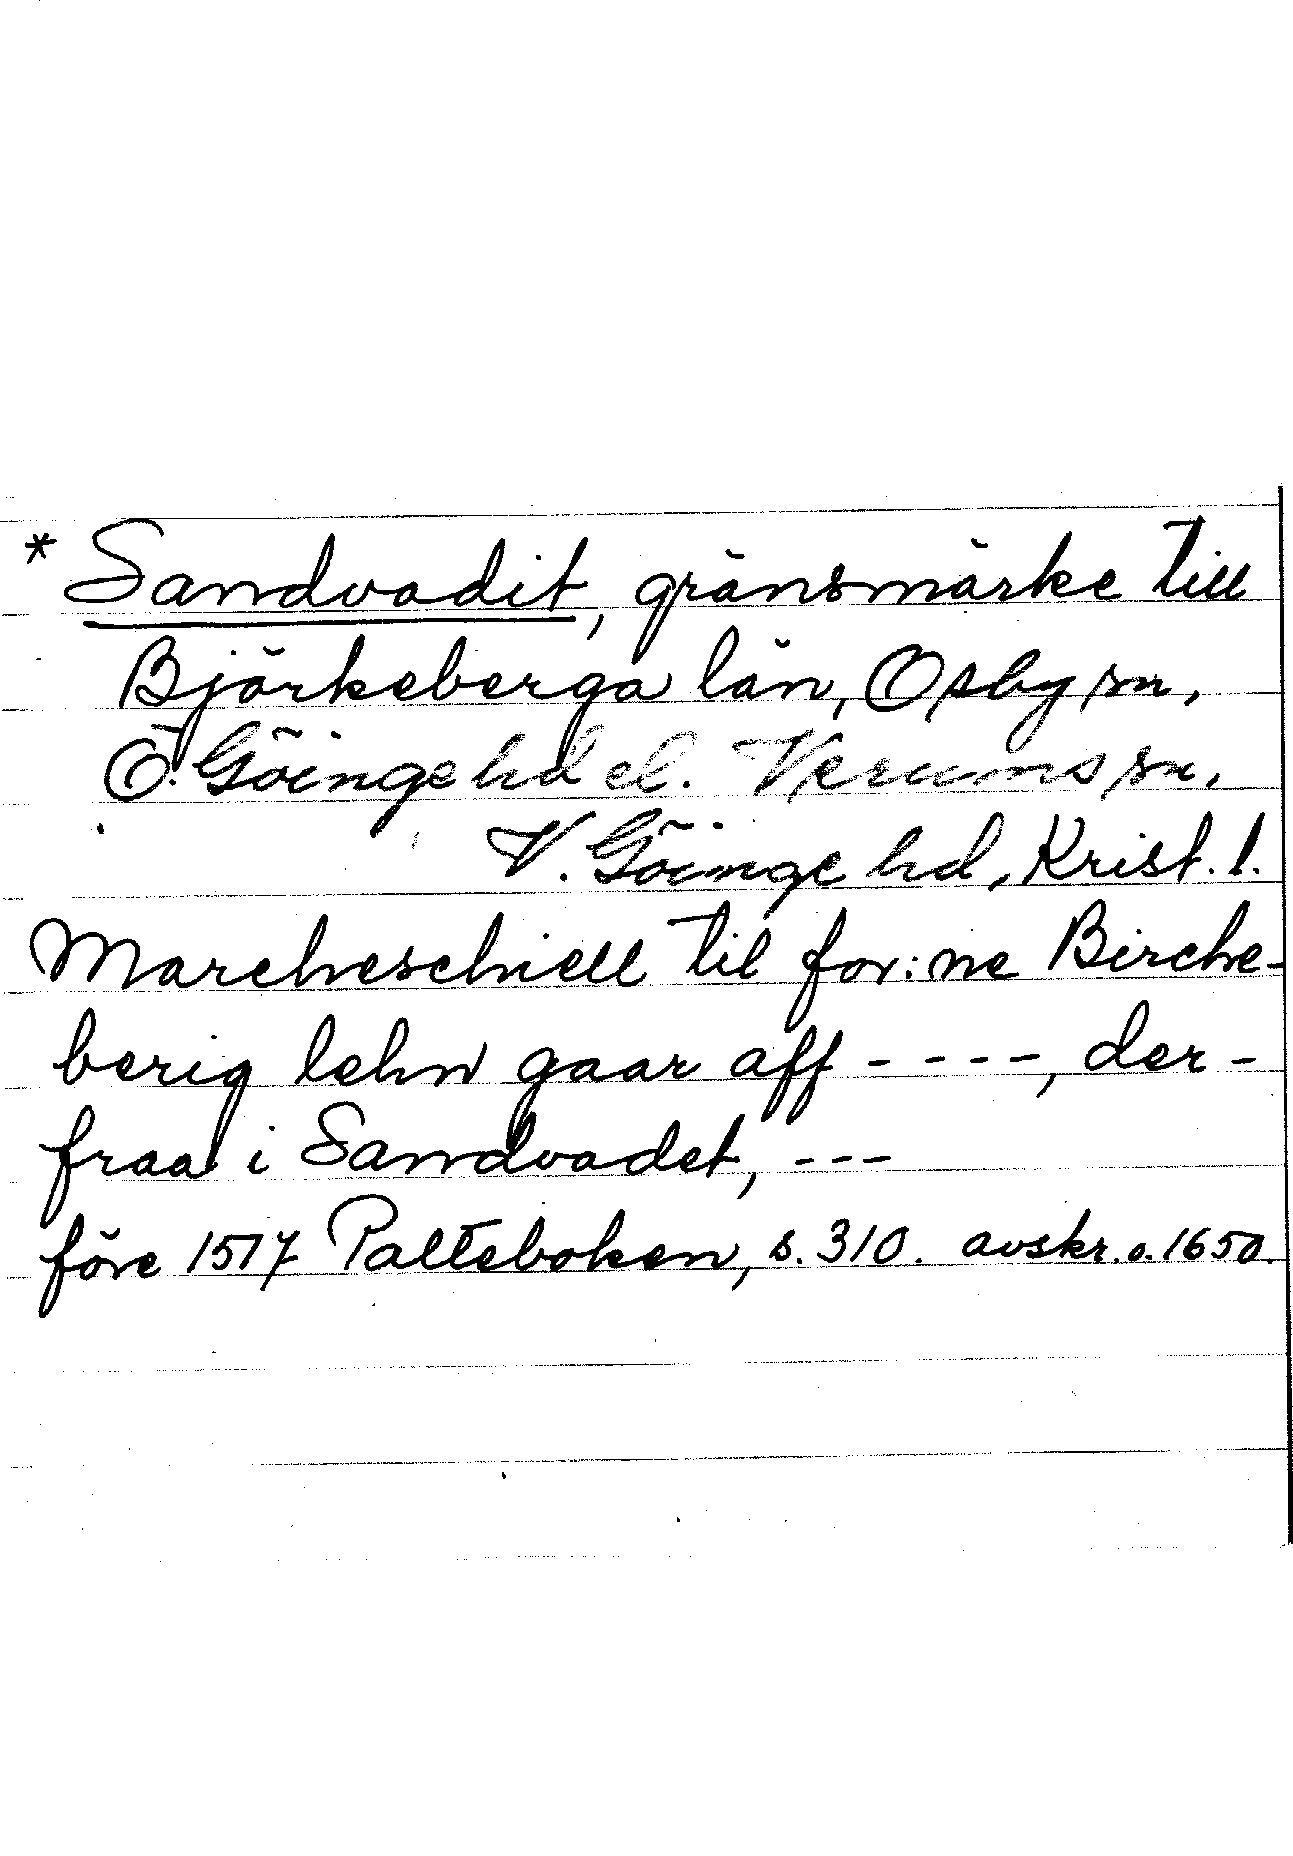 * Sandvadit, gränsmärke till
Björkeberga län, Osby sn,
Ö. Göinge hd el. Verums sn,
V. Göinge hd, Krist. l.
Marcheschiell til for:ne Birche-
berig lehn gaar aff ----, der-
fraa i Sandvadet, ---
före 1517 Palteboken, s. 310. avskr. o. 1650.